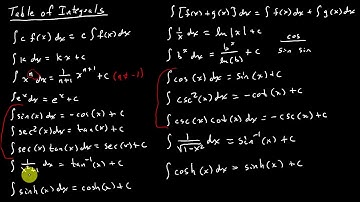 Table of Integrals
∫ c f(x) dx = c ∫ f(x) dx
∫ k dx = kx + c
∫ xⁿ dx = 1/(n+1) xⁿ⁺¹ + c (n≠-1)
∫ eˣ dx = eˣ + c
∫ sin(x) dx = -cos(x) + c
∫ sec²(x) dx = tan(x) + c
∫ sec(x) tan(x) dx = sec(x) + c
dx = tan⁻¹(x) + c
∫ sinh(x) dx = cosh(x) + c
∫ [f(x) + g(x)] dx = ∫ f(x) dx + ∫ g(x) dx
∫ 1/x dx = ln|x| + c
∫ bˣ dx = bˣ/ln(b) + c
cos
sin sin
∫ cos(x) dx = sin(x) + c
∫ csc²(x) dx = -cot(x) + c
∫ csc(x) cot(x) dx = -csc(x) + c
∫ 1/√(1-x²) dx = sin⁻¹(x) + c
∫ cosh(x) dx = sinh(x) + c